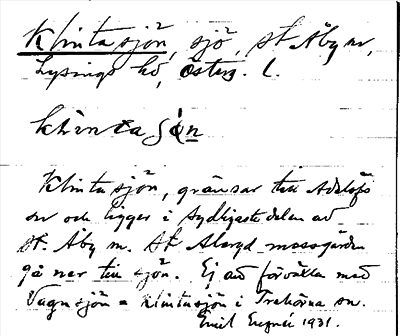 Klintasjön, sjö, St Åby sn,
Lysings hd, Österg. l.
klintasjön
Klintasjön, gränsar till Adelöfs
sn och ligger i sydligaste delen av
St. Åby sn. St Aleryd mossgården
gå ner till sjön. Ej att förväxla med
Vagnsjön = Klintasjön i Trehörna sn.
Emil 1931.